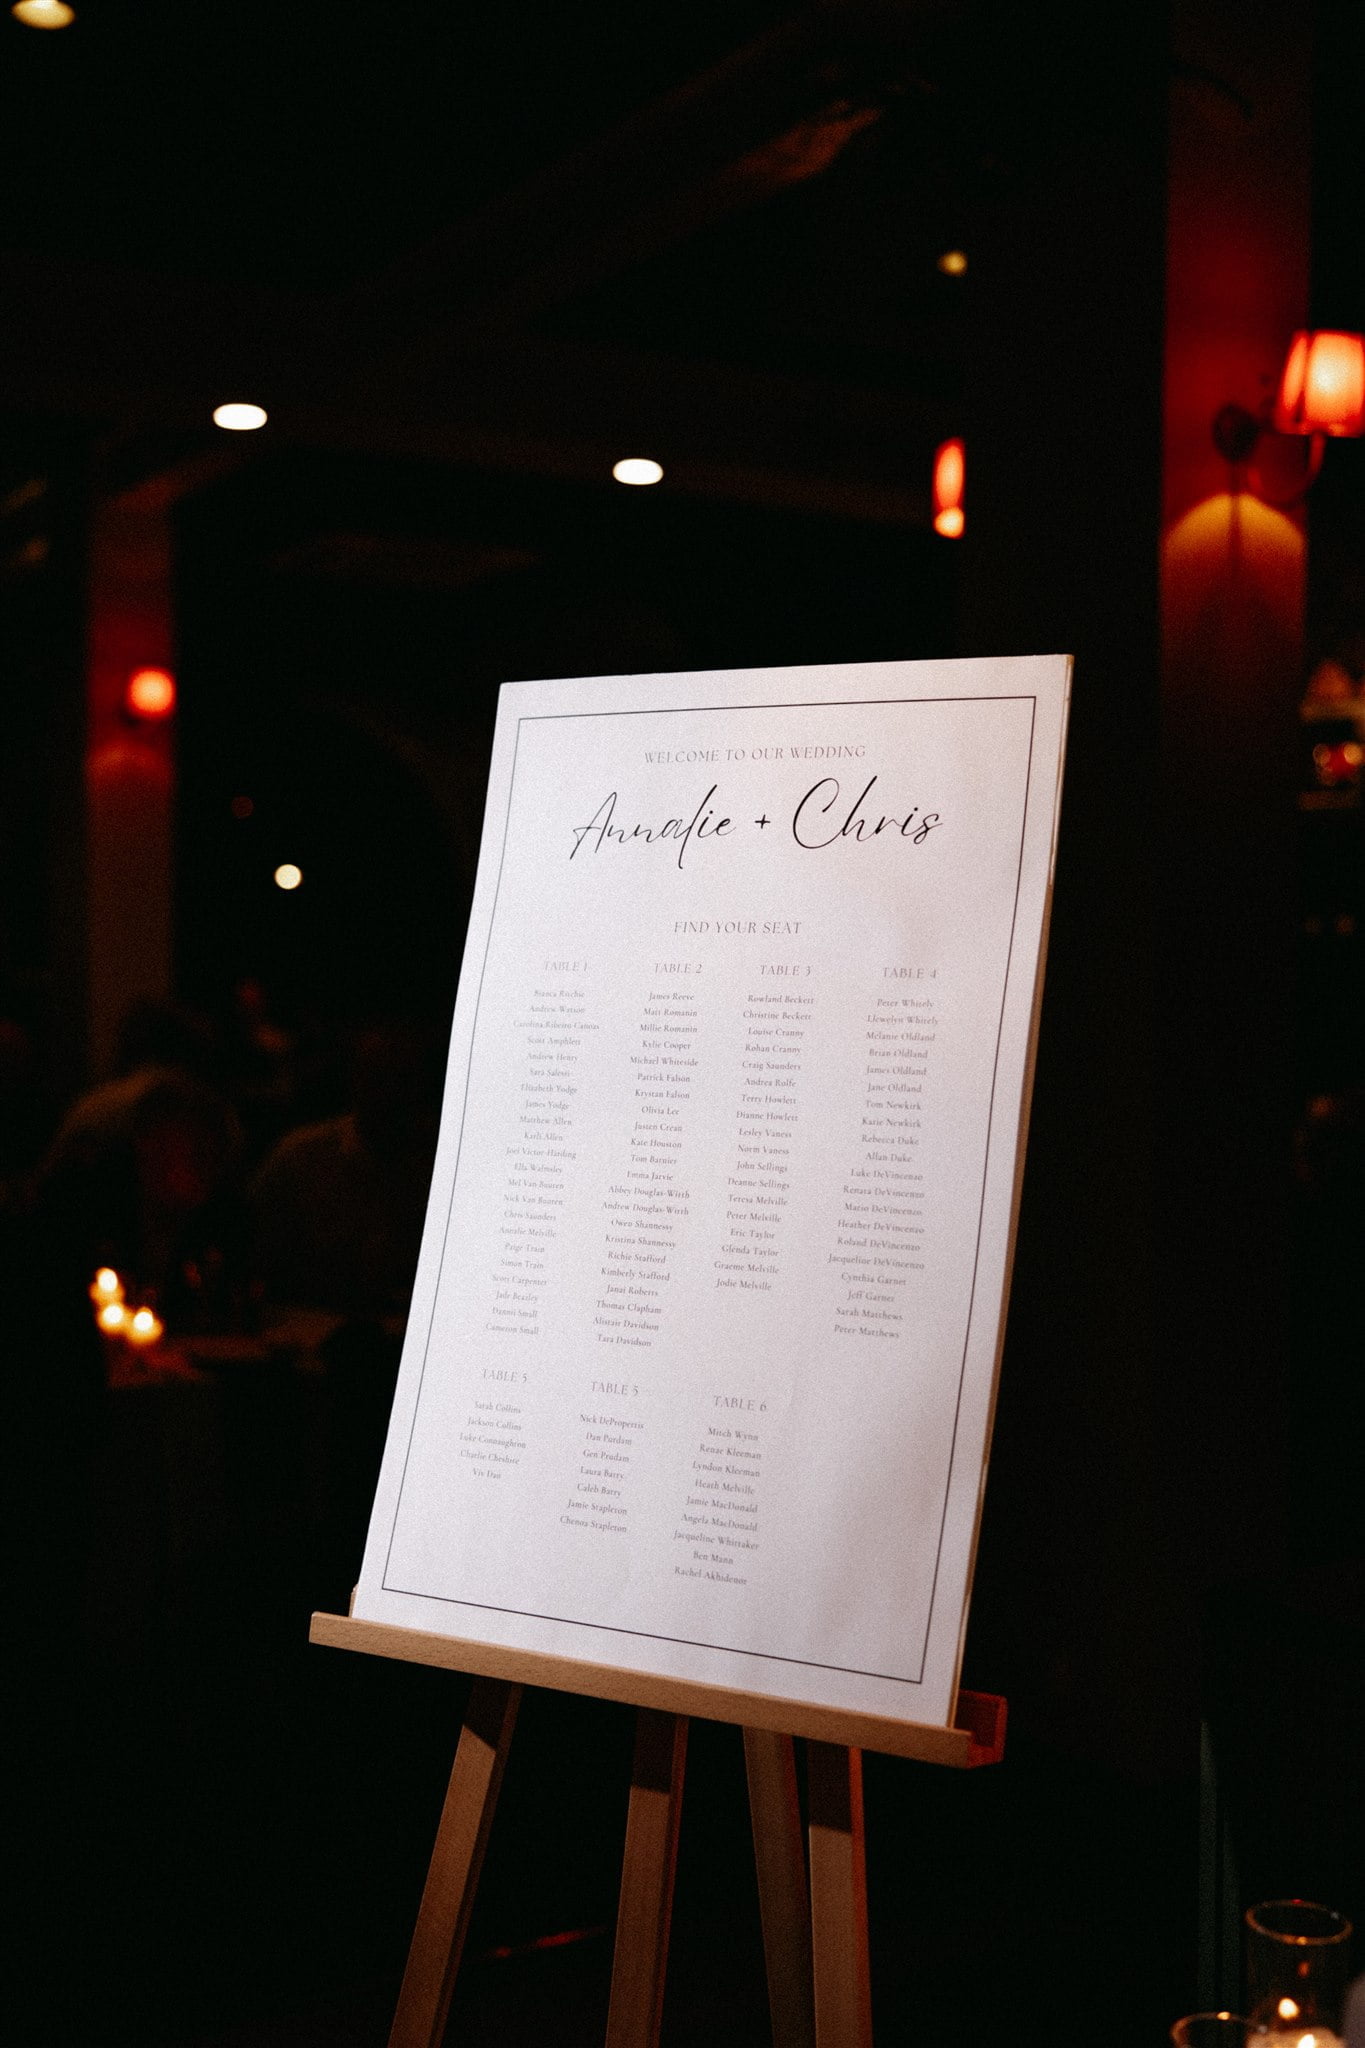 WELCOME TO OUR WEDDING
Annalie + Chris
FIND YOUR SEAT
TABLE 1
Bianca Ritchie
Andrew Watson
Carolina Ribeiro Canoas
Scott Amphlett
Andrew Henry
Sara Salessi
Elizabeth Yodge
James Yodge
Matthew Allen
Karli Allen
Joel Victor-Harding
Ella Walmsley
Mel Van Buuren
Nick Van Buuren
Chris Saunders
Annalie Melville
Paige Train
Simon Train
Scott Carpenter
Jade Beazley
Dannii Small
Cameron Small
TABLE 2
James Reeve
Matt Romanin
Millie Romanin
Kylie Cooper
Michael Whiteside
Patrick Falson
Krystan Falson
Olivia Lee
Justen Crean
Kate Houston
Tom Barnier
Emma Jarvie
Abbey Douglas-Wirth
Andrew Douglas-Wirth
Owen Shannessy
Kristina Shannessy
Richie Stafford
Kimberly Stafford
Janai Roberts
Thomas Clapham
Alistair Davidson
Tara Davidson
TABLE 3
Rowland Beckett
Christine Beckett
Louise Cranny
Rohan Cranny
Craig Saunders
Andrea Rolfe
Terry Howlett
Dianne Howlett
Lesley Vaness
Norm Vaness
John Sellings
Deanne Sellings
Teresa Melville
Peter Melville
Eric Taylor
Glenda Taylor
Graeme Melville
Jodie Melville
TABLE 4
Peter Whitely
Llewelyn Whitely
Melanie Oldland
Brian Oldland
James Oldland
Jane Oldland
Tom Newkirk
Karie Newkirk
Rebecca Duke
Allan Duke
Luke DeVincenzo
Renata DeVincenzo
Mario DeVincenzo
Heather DeVincenzo
Roland DeVincenzo
Jacqueline DeVincenzo
Cynthia Garner
Jeff Garner
Sarah Matthews
Peter Matthews
TABLE 5
Sarah Collins
Jackson Collins
Luke Connaughton
Charlie Cheshire
Viv Dao
TABLE 5
Nick DePropertis
Dan Purdam
Gen Prudam
Laura Barry
Caleb Barry
Jamie Stapleton
Chenoa Stapleton
TABLE 6
Mitch Wynn
Renae Kleeman
Lyndon Kleeman
Heath Melville
Jamie MacDonald
Angela MacDonald
Jacqueline Whittaker
Ben Mann
Rachel Akhidenor